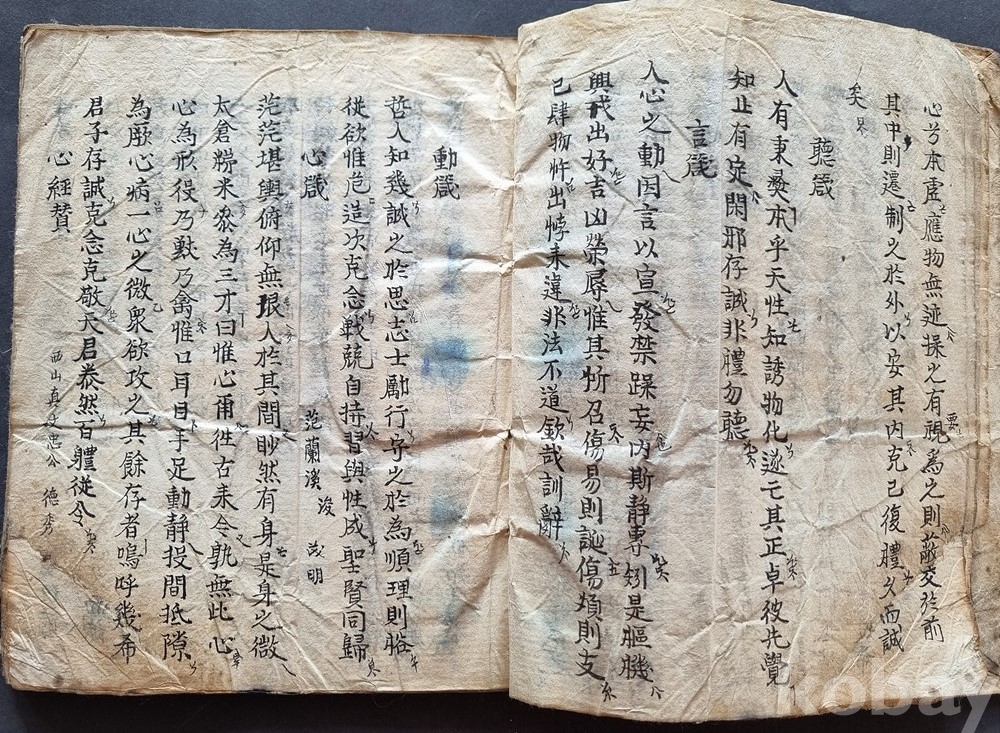 心兮本虛應物無迹操之有要視爲之則蔽交於前
其中則遷制之於外以安其內克己復禮久而誠
矣
聽箴
人有秉彝本乎天性知誘物化遂亡其正卓彼先覺
知止有定閑邪存誠非禮勿聽
言箴
人心之動因言以宣發禁躁妄內斯靜專矧是樞機
興戎出好吉凶榮辱惟其所召傷易則誕傷煩則支
己肆物忤出悖来違非法不道欽哉訓辭
動箴
哲人知幾誠之於思志士勵行守之於為順理則裕
從欲惟危造次克念戰兢自持習與性成聖賢同歸
心箴 范蘭溪 浚 茂明
茫茫堪輿俯仰無垠人於其間眇然有身是身之微
太倉稊米叅為三才曰惟心爾徃古来今孰無此心
心為形役乃獸乃禽惟口耳目手足動靜投間抵隙
為厥心病一心之微衆欲攻之其餘存者嗚呼幾希
君子存誠克念克敬天君泰然百體從令
心經賛 西山真文忠公 德秀
kobay